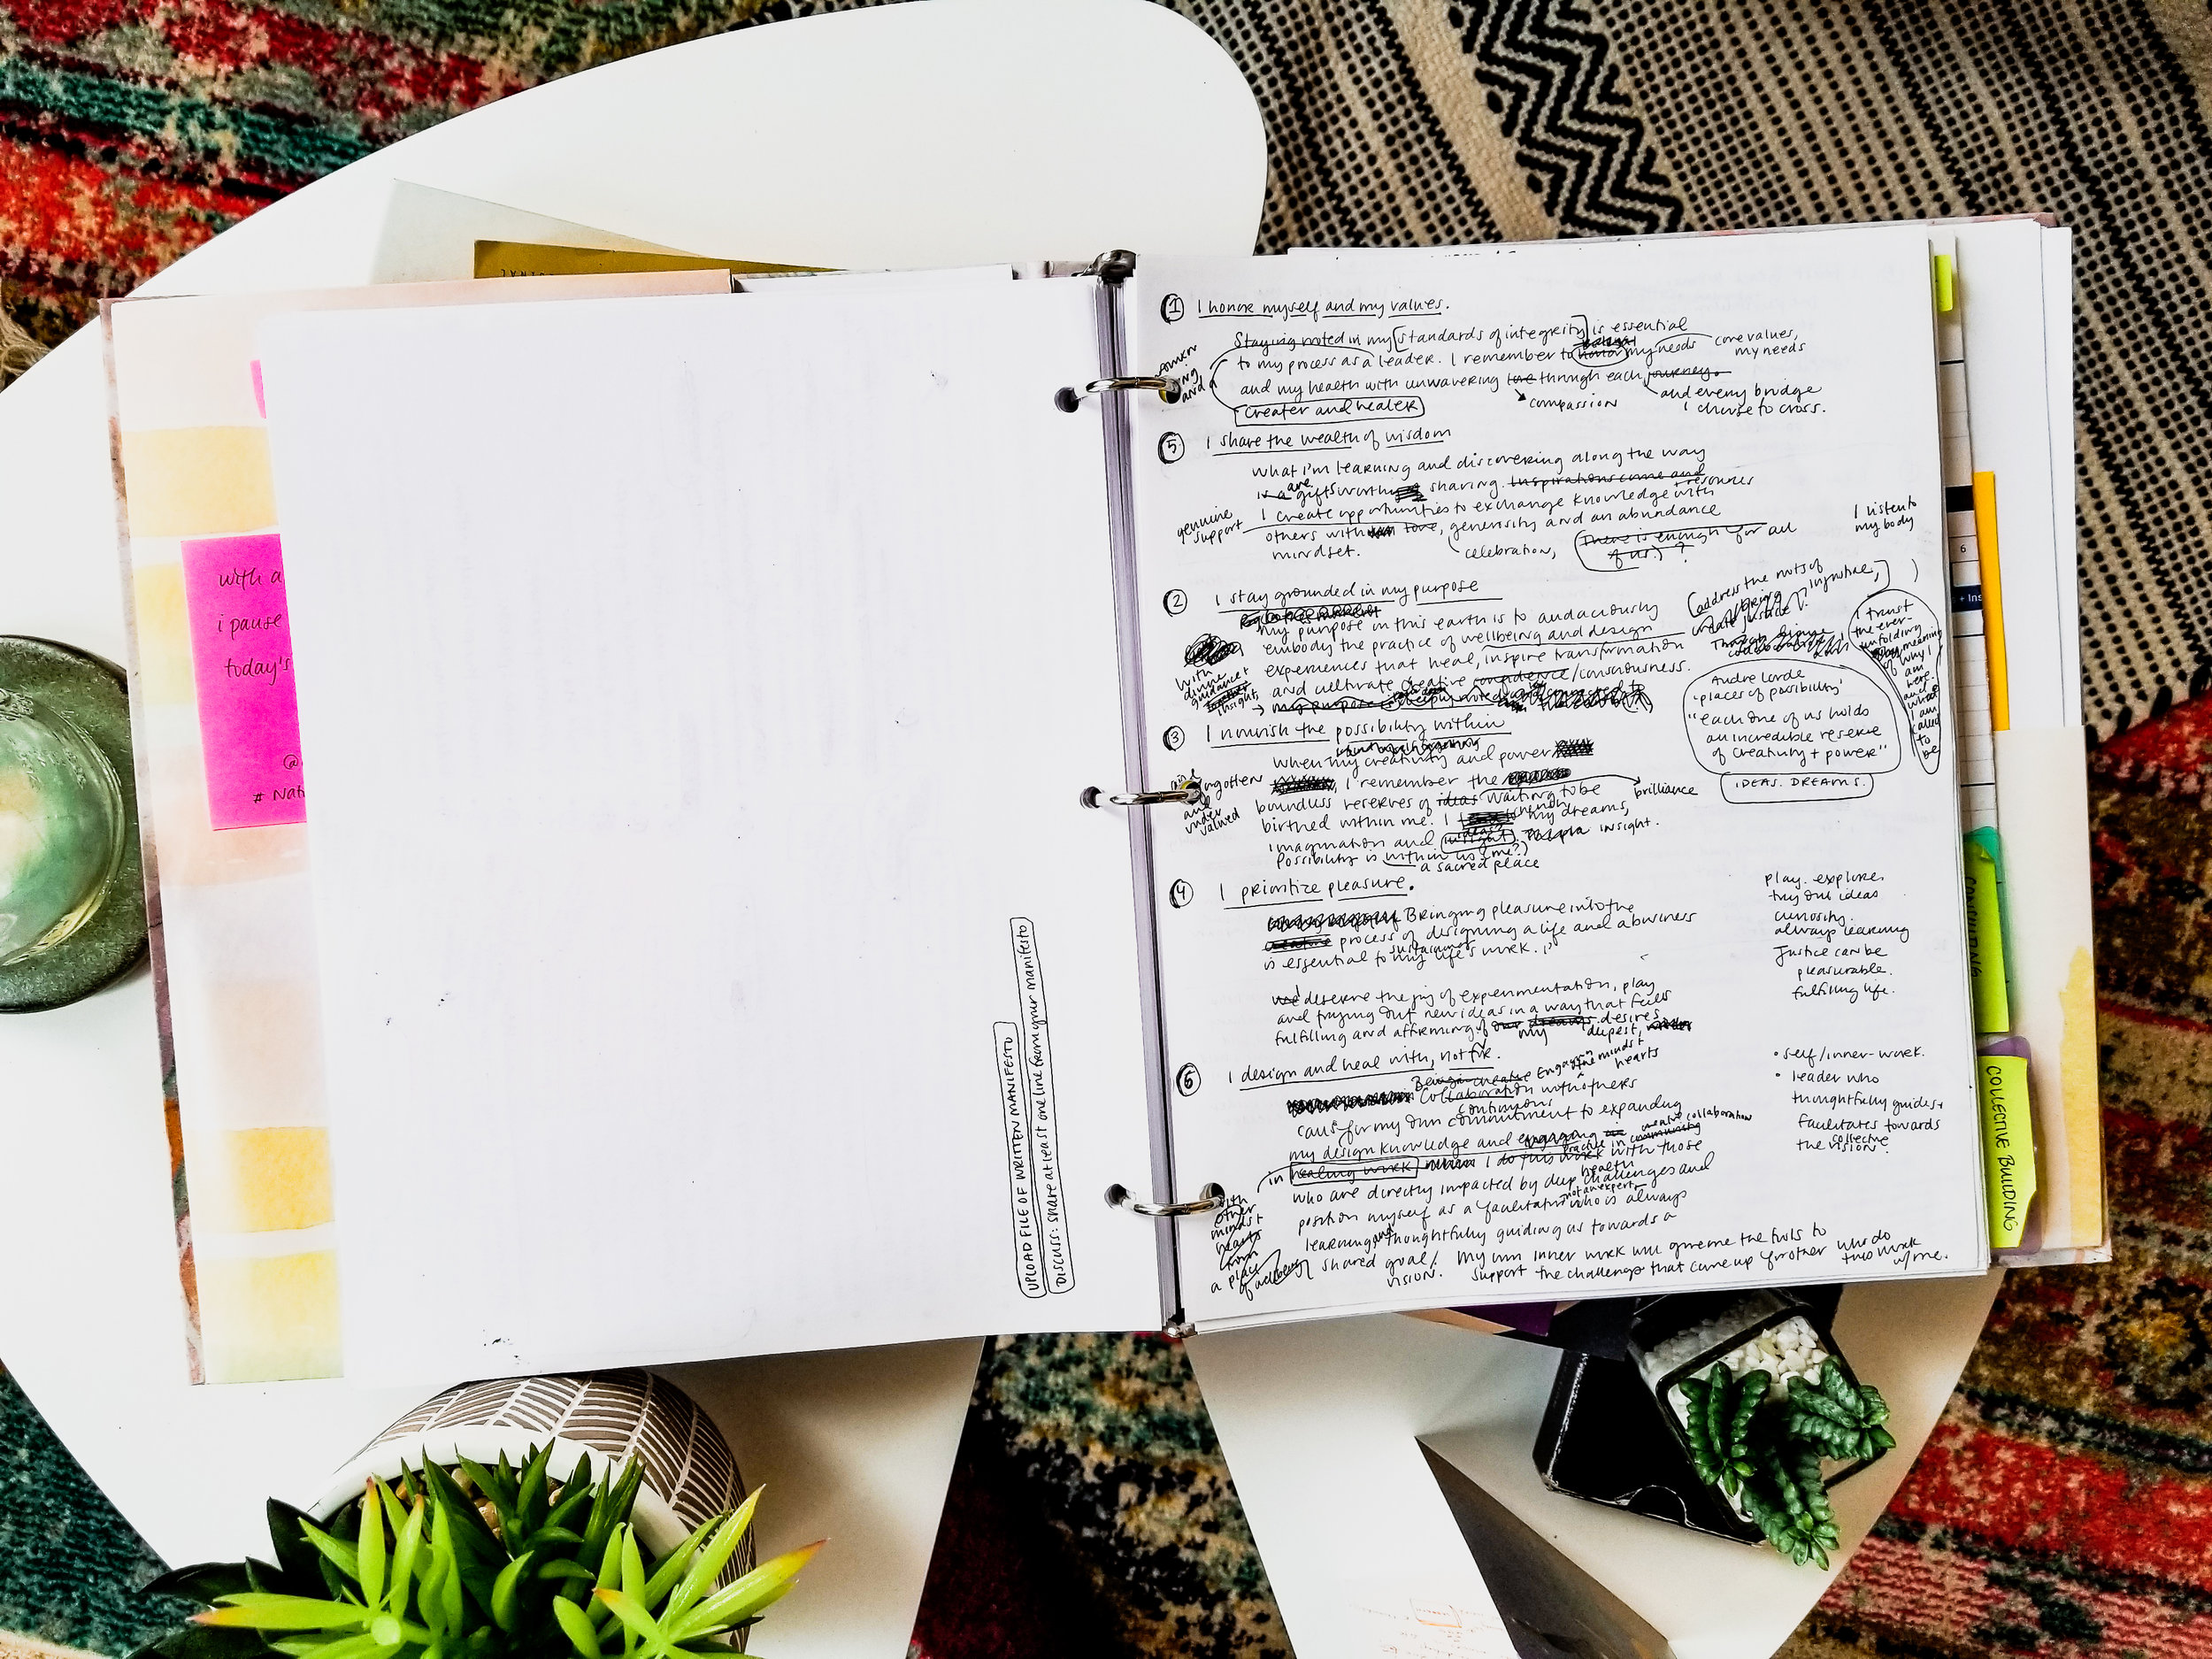 with a
i pause
today's
@
# Nati
UPLOAD FILE OF WRITTEN MANIFESTO
DISCUSS: share at least one line from your manifesto
1 I honor myself and my values.
Staying rooted in my [standards of integrity] is essential
to my process as a leader. I remember to honor my needs core values,
my needs
and my health with unwavering love through each journey.
compassion
and every bridge
I choose to cross.
creator and healer
5 I share the wealth of wisdom
what I'm learning and discovering along the way
is a are gifts worth sharing. Inspirations come and
I create opportunities to exchange knowledge with + resources
genuine
support
others with love, generosity and an abundance
mindset.
celebration,
(There is enough for all
of us.) ?
I listen to
my body
2 I stay grounded in my purpose
my purpose on this earth is to audaciously
embody the practice of wellbeing and design
experiences that heal, inspire transformation
and cultivate creative confidence/consciousness.
with
divine
guidance +
together
insight,
my purpose is deeply rooted
(address the roots of
injustice,
create justice?
I trust
the ever-
unfolding
meaning
of why I
am
here
and
who
I am
called
to
be
Audre Lorde
"places of possibility"
"each one of us holds
an incredible reserve
of creativity + power"
IDEAS. DREAMS.
3 I nourish the possibility within
when my creativity and power
forgotten
and
under
valued
I remember the
boundless reserves of ideas waiting to be
brilliance
birthed within me. I my dreams,
imagination and insight insight.
Possibility is within us (me?)
a sacred place
4 I prioritize pleasure.
Bringing pleasure into the
creative process of designing a life and a business
is essential to sustaining my life's work.
we I deserve the joy of experimentation, play
and trying out new ideas in a way that feels
fulfilling and affirming of our dreams. desires
my deepest,
play. explore.
try out ideas
curiosity.
always learning
Justice can be
pleasurable.
fulfilling life.
6 I design and heal with, not for.
Being creative Engaging in
the minds +
hearts
Collaboration with others
continuous
calls for my own commitment to expanding
my design knowledge and engaging in community
creative collaboration
in healing work I do this work with those
practice
who are directly impacted by deep health challenges and
position myself as a facilitator who is always
not an expert
learning and thoughtfully guiding us towards a
shared goal/
vision.
with
other
minds +
hearts
from
a place
of wellbeing
My own inner work will give me the tools to
support the challenges that come up for other who do
this work
w/ me.
• self/inner-work.
• leader who
thoughtfully guides +
facilitates towards
the collective
vision.
CONSULTING
COLLECTIVE BUILDING
6
+ Ins